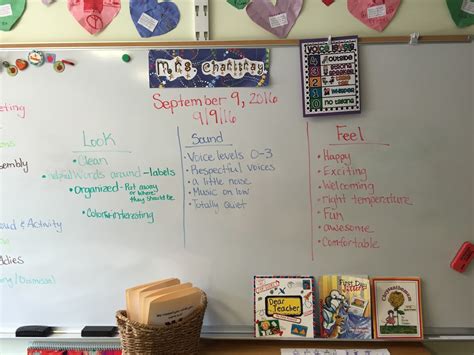 Mrs. Chartray
September 9, 2016
9/9/16
Voice Levels
4 outside
3
2
1 whisper
0 no talking
eting
embly
oud & Activity
ddies
ing/Dismissal
Look
• Clean
• Helpful Words around - labels
• Organized - Put away or where they should be.
• Colorful + interesting
Sound
• Voice levels 0-3
• Respectful voices
• a little noise
• Music on low
• Totally Quiet
Feel
• Happy
• Exciting
• Welcoming
• right temperature
• Fun
• awesome
• Comfortable
Dear Teacher
First Day Jitters
Chrysanthemum